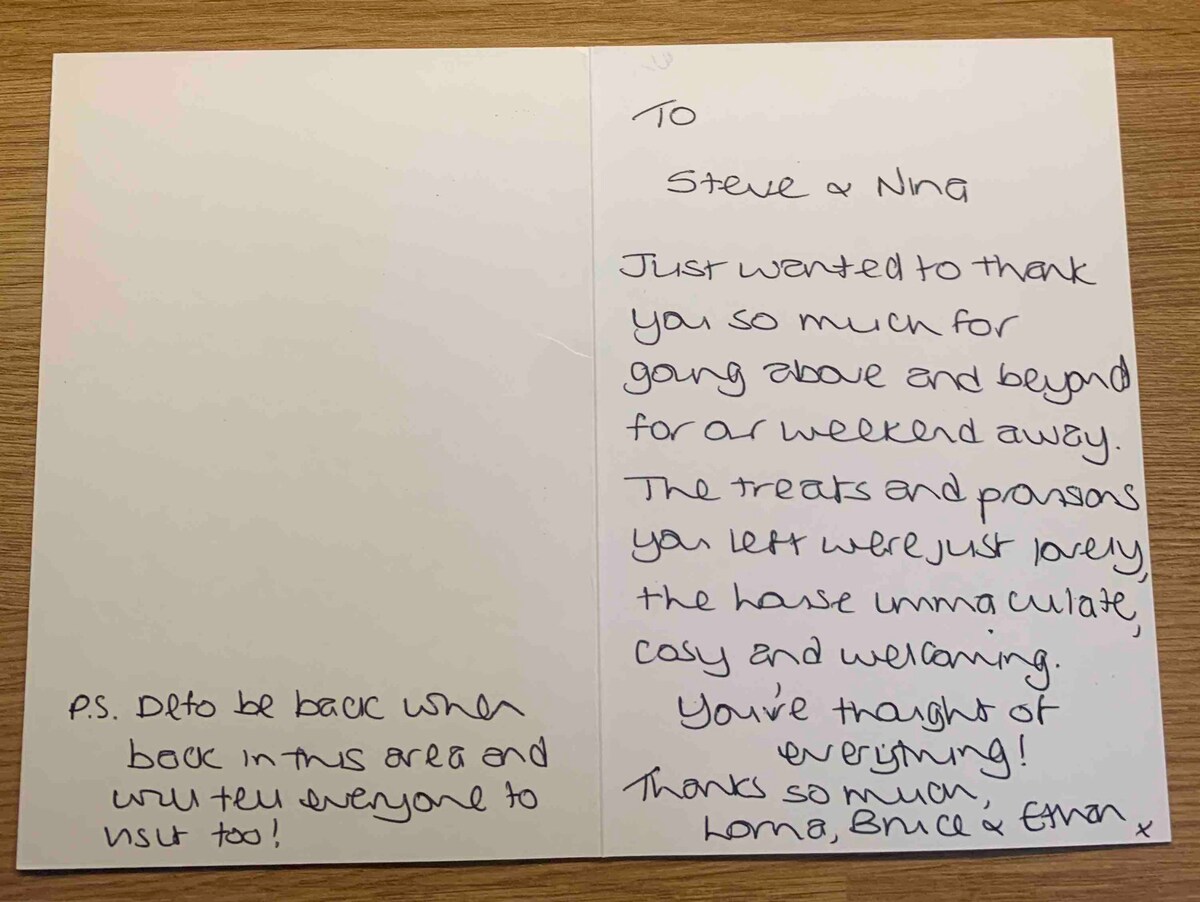 To
Steve & Nina
Just wanted to thank
you so much for
going above and beyond
for our weekend away.
The treats and provisions
you left were just lovely,
the house immaculate,
cosy and welcoming.
You've thought of
everything!
Thanks so much,
Lorna, Bruce & Ethan x
P.S. Defo be back when
back in this area and
will tell everyone to
visit too!